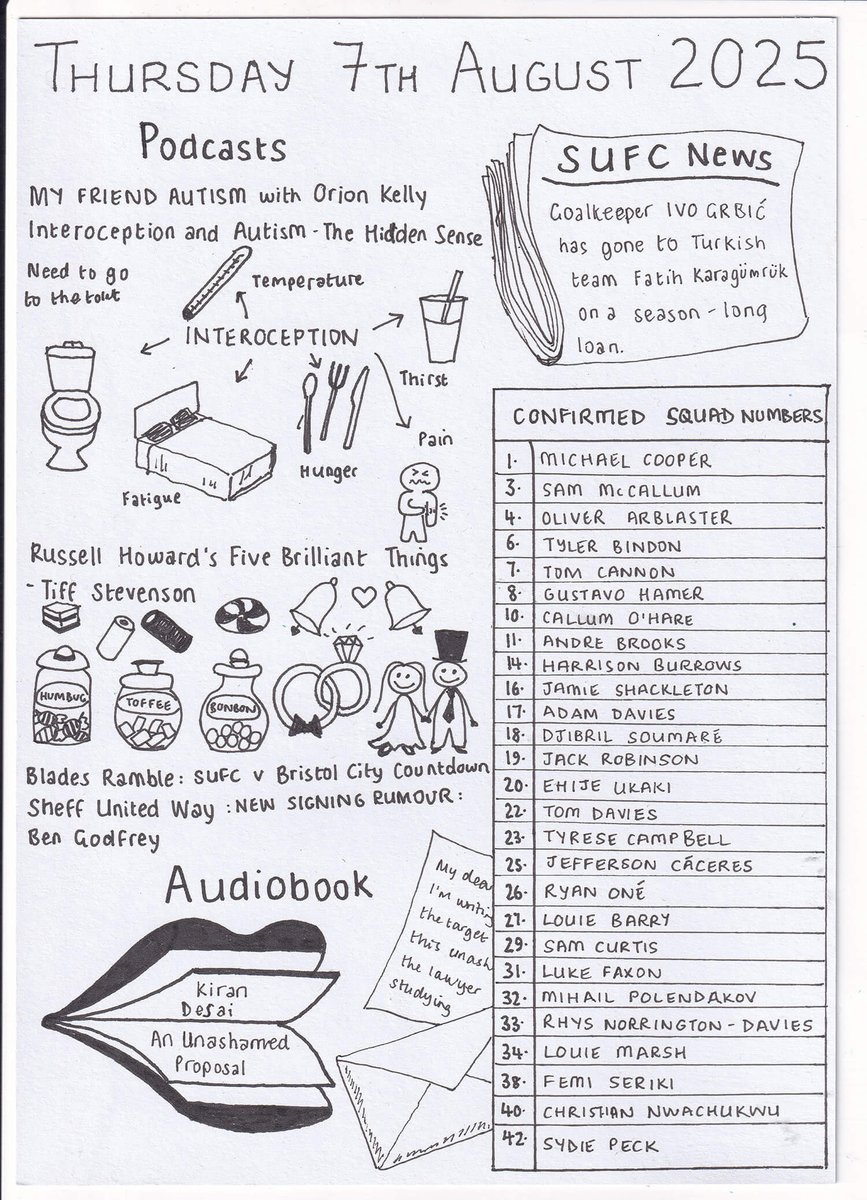 THURSDAY 7TH AUGUST 2025
Podcasts
MY FRIEND AUTISM with Orion Kelly
Interoception and Autism - The Hidden Sense
Need to go
to the toilet
Temperature
INTEROCEPTION
Thirst
Pain
Hunger
Fatigue
Russell Howard's Five Brilliant Things
- Tiff Stevenson
HUMBUG
TOFFEE
BONBON
Blades Ramble: SUFC v Bristol City Countdown
Sheff United Way : NEW SIGNING RUMOUR:
Ben Godfrey
Audiobook
Kiran
Desai
An Unashamed
Proposal
My dear
I'm writing
the target
this unash
the lawyer
studying
SUFC News
Goalkeeper IVO GRBIĆ
has gone to Turkish
team Fatih Karagümrük
on a season-long
loan.
CONFIRMED SQUAD NUMBERS
1. MICHAEL COOPER
3. SAM McCALLUM
4. OLIVER ARBLASTER
6. TYLER BINDON
7. TOM CANNON
8. GUSTAVO HAMER
10. CALLUM O'HARE
11. ANDRE BROOKS
14. HARRISON BURROWS
16. JAMIE SHACKLETON
17. ADAM DAVIES
18. DJIBRIL SOUMARÉ
19. JACK ROBINSON
20. EHIJE UKAKI
22. TOM DAVIES
23. TYRESE CAMPBELL
25. JEFFERSON CÁCERES
26. RYAN ONÉ
27. LOUIE BARRY
29. SAM CURTIS
31. LUKE FAXON
32. MIHAIL POLENDAKOV
33. RHYS NORRINGTON-DAVIES
34. LOUIE MARSH
38. FEMI SERIKI
40. CHRISTIAN NWACHUKWU
42. SYDIE PECK